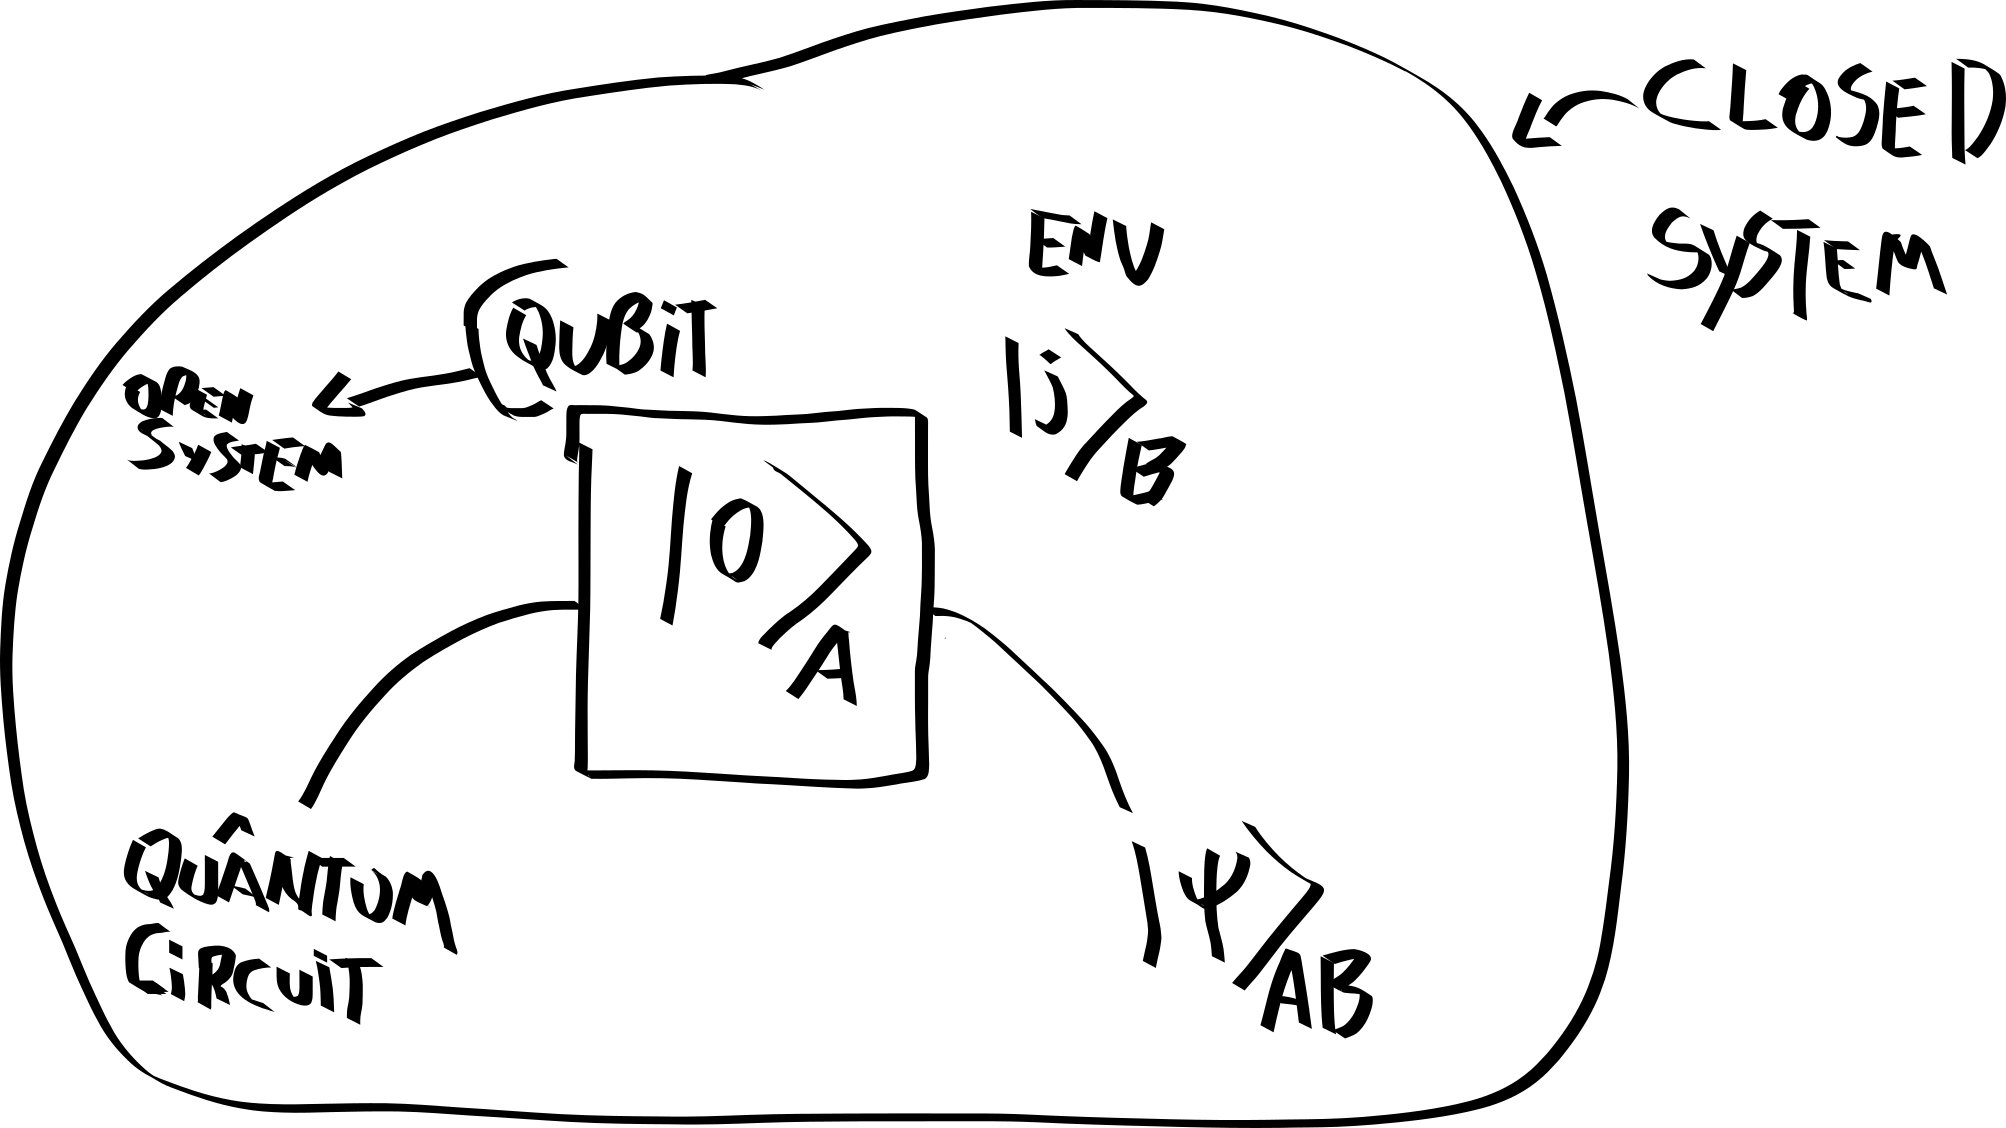 CLOSED
SYSTEM
ENV
QUBiT
|j⟩B
OPEN
SYSTEM
|0⟩A
QUÂNTUM
CiRCUiT
|ψ⟩AB